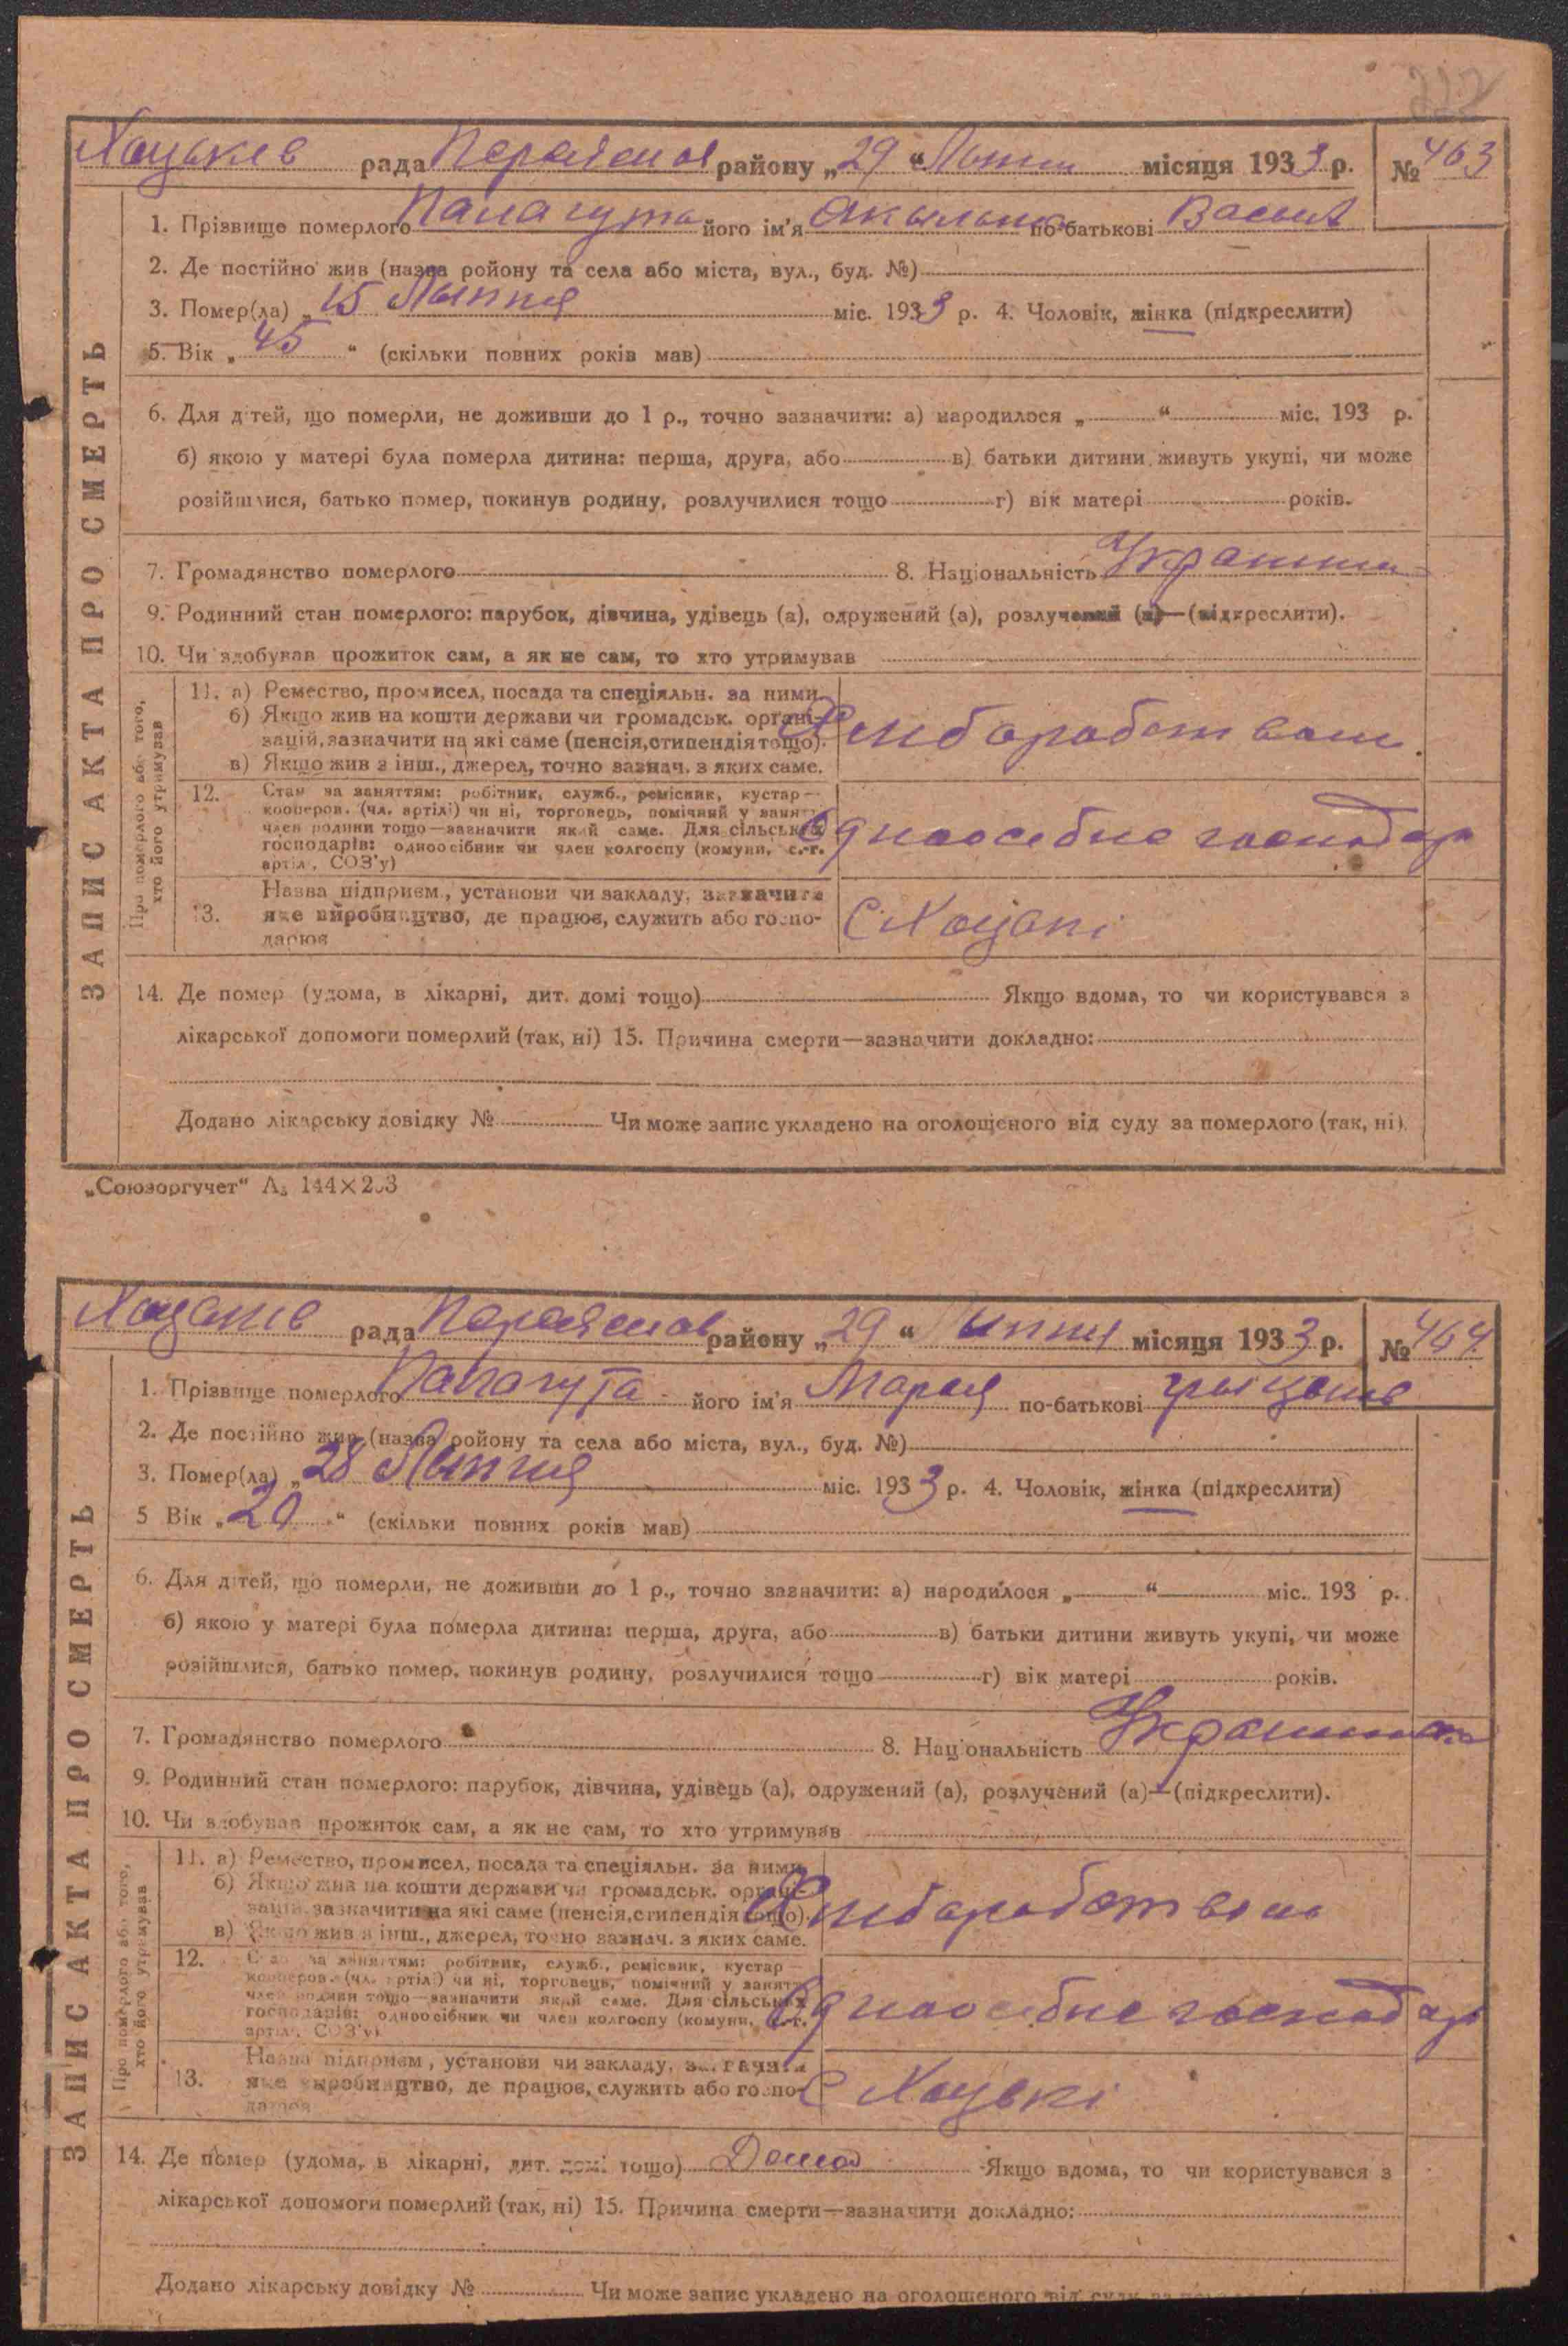 222
Хоцьків рада Переяслов району „29“ Липня місяця 1933 р. № 463
1. Прізвище померлого Палагута його ім'я по-батькові Васил
2. Де постійно жив (назва ройону та села або міста, вул., буд. №)
3. Помер(ла) „15 Липня міс. 1933 р. 4. Чоловік, жінка (підкреслити)
5. Вік „45“ (скільки повних років мав)
6. Для дітей, що померли, не доживши до 1 р., точно зазначити: а) народилося „ “ міс. 193 р.
б) якою у матері була померла дитина: перша, друга, або в) батьки дитини живуть укупі, чи може
розійшлися, батько помер, покинув родину, розлучилися тощо г) вік матері років.
7. Громадянство померлого 8. Національність Украинка
9. Родинний стан померлого: парубок, дівчина, удівець (а), одружений (а), розлучений (а)—(підкреслити).
10. Чи здобував прожиток сам, а як не сам, то хто утримував
ЗАПИС АКТА ПРО СМЕРТЬ
Про померлого або того,
хто його утримував
11. а) Ремество, промисел, посада та спеціяльн. за ними.
б) Якщо жив на кошти держави чи громадськ. органі-
зацій, зазначити на які саме (пенсія, стипендія тощо).
в) Якщо жив з інш., джерел, точно зазнач. з яких саме.
Хлібаработвом
12. Стан за заняттям: робітник, служб., ремісник, кустар—
кооперов. (чл. артілі) чи ні, торговець, помічний у занятт.
член родини тощо—зазначити який саме. Для сільських
господарів: одноосібник чи член колгоспу (комуни, с.-г.
артіл., СОЗ'у)
Одноособне господар
13. Назва підприєм., установи чи закладу, зазначити
яке виробництво, де працює, служить або госпо-
дарює
С Хоцькі
14. Де помер (удома, в лікарні, дит. домі тощо) Якщо вдома, то чи користувався з
лікарської допомоги померлий (так, ні) 15. Причина смерти—зазначити докладно:
Додано лікарську довідку № Чи може запис укладено на оголошеного від суду за померлого (так, ні).
„Союзоргучет“ А₅ 144×203
Хоцьків рада Переяслов району „29“ Липня місяця 1933 р. № 464
1. Прізвище померлого Палагута його ім'я Мария по-батькові Грыцьків
2. Де постійно жив (назва ройону та села або міста, вул., буд. №)
3. Помер(ла) „28 Липня міс. 1933 р. 4. Чоловік, жінка (підкреслити)
5 Вік „20“ (скільки повних років мав)
6. Для дітей, що померли, не доживши до 1 р., точно зазначити: а) народилося „ “ міс. 193 р.
б) якою у матері була померла дитина: перша, друга, або в) батьки дитини живуть укупі, чи може
розійшлися, батько помер, покинув родину, розлучилися тощо г) вік матері років.
7. Громадянство померлого 8. Національність Украинка
9. Родинний стан померлого: парубок, дівчина, удівець (а), одружений (а), розлучений (а)—(підкреслити).
10. Чи здобував прожиток сам, а як не сам, то хто утримував
ЗАПИС АКТА ПРО СМЕРТЬ
Про померлого або того,
хто його утримував
11. а) Ремество, промисел, посада та спеціяльн. за ними.
б) Якщо жив на кошти держави чи громадськ. органі-
зацій, зазначити на які саме (пенсія, стипендія тощо).
в) Якщо жив з інш., джерел, точно зазнач. з яких саме.
Хлібаработвом
12. Стан за заняттям: робітник, служб., ремісник, кустар—
кооперов. (чл. артілі) чи ні, торговець, помічний у занятт.
член родини тощо—зазначити який саме. Для сільських
господарів: одноосібник чи член колгоспу (комуни, с.-г.
артіл., СОЗ'у)
Одноособне господар
13. Назва підприєм., установи чи закладу, зазначити
яке виробництво, де працює, служить або госпо-
дарює
С Хоцькі
14. Де помер (удома, в лікарні, дит. домі тощо) Дома Якщо вдома, то чи користувався з
лікарської допомоги померлий (так, ні) 15. Причина смерти—зазначити докладно:
Додано лікарську довідку № Чи може запис укладено на оголошеного від суду